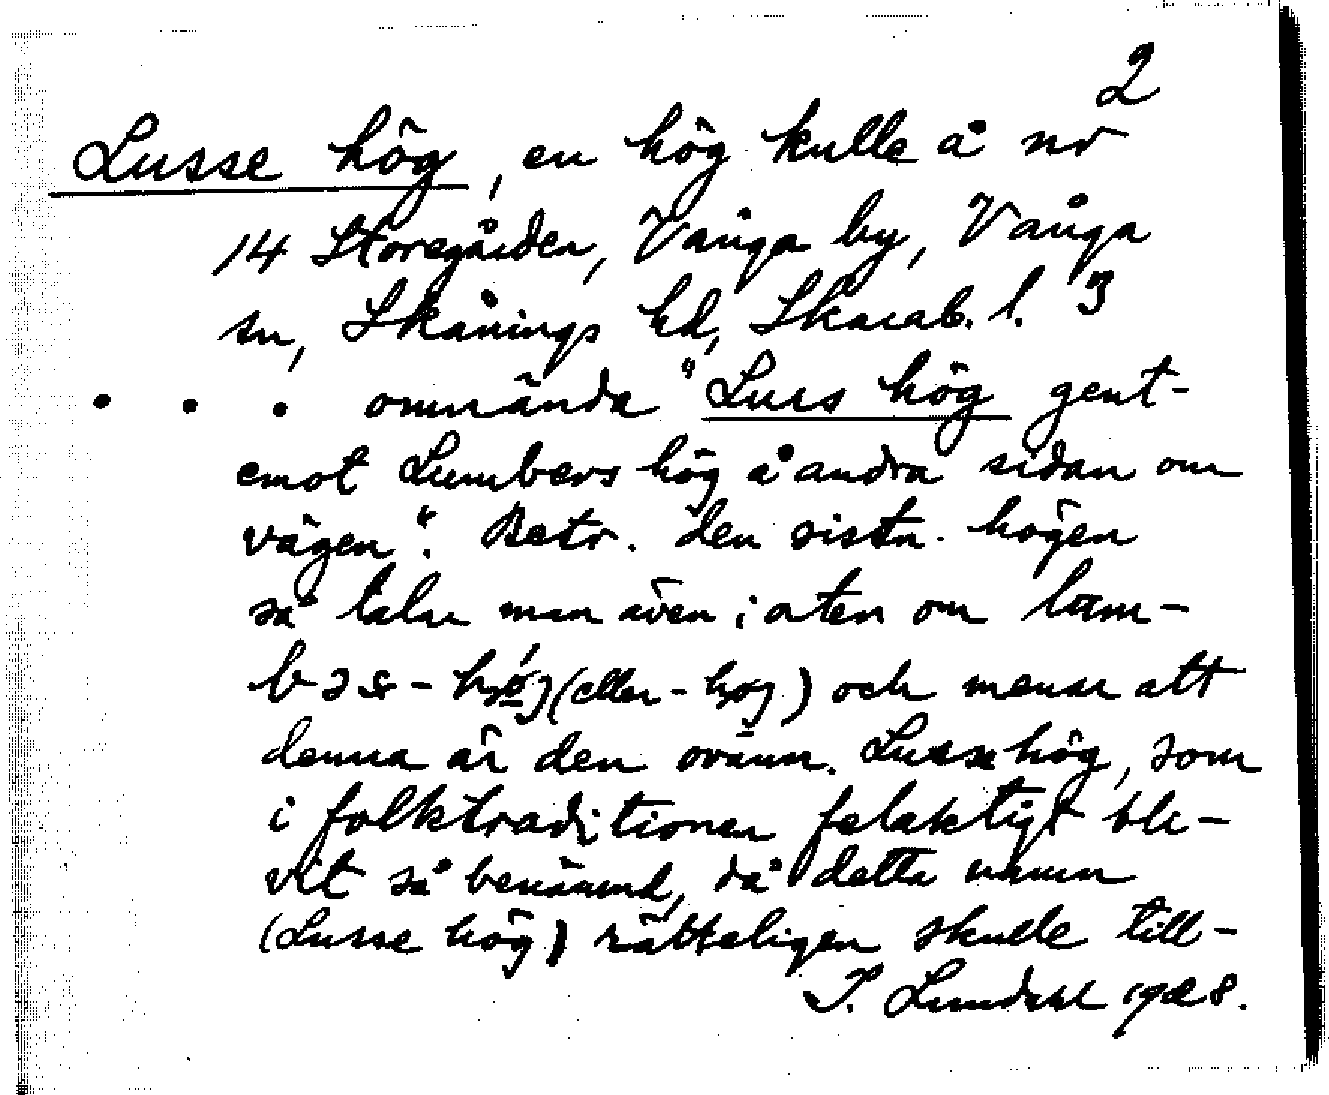 2
Lusse hög, en hög kulle å nr
14 Storegården, Vånga by, Vånga
sn, Skånings hd, Skarab. l. 3
. . . omnända "Luss hög gent-
emot Lumbers hög å andra sidan om
vägen". Betr. den sistn. högen
så talar man även i orten om
(eller - ) och menar att
denna är den ovann. Lusse hög, som
i folktraditionen felaktigt ble-
vit så benämnd, då detta namn
(Lusse hög) rätteligen skulle till-
I. Lundahl 1928.